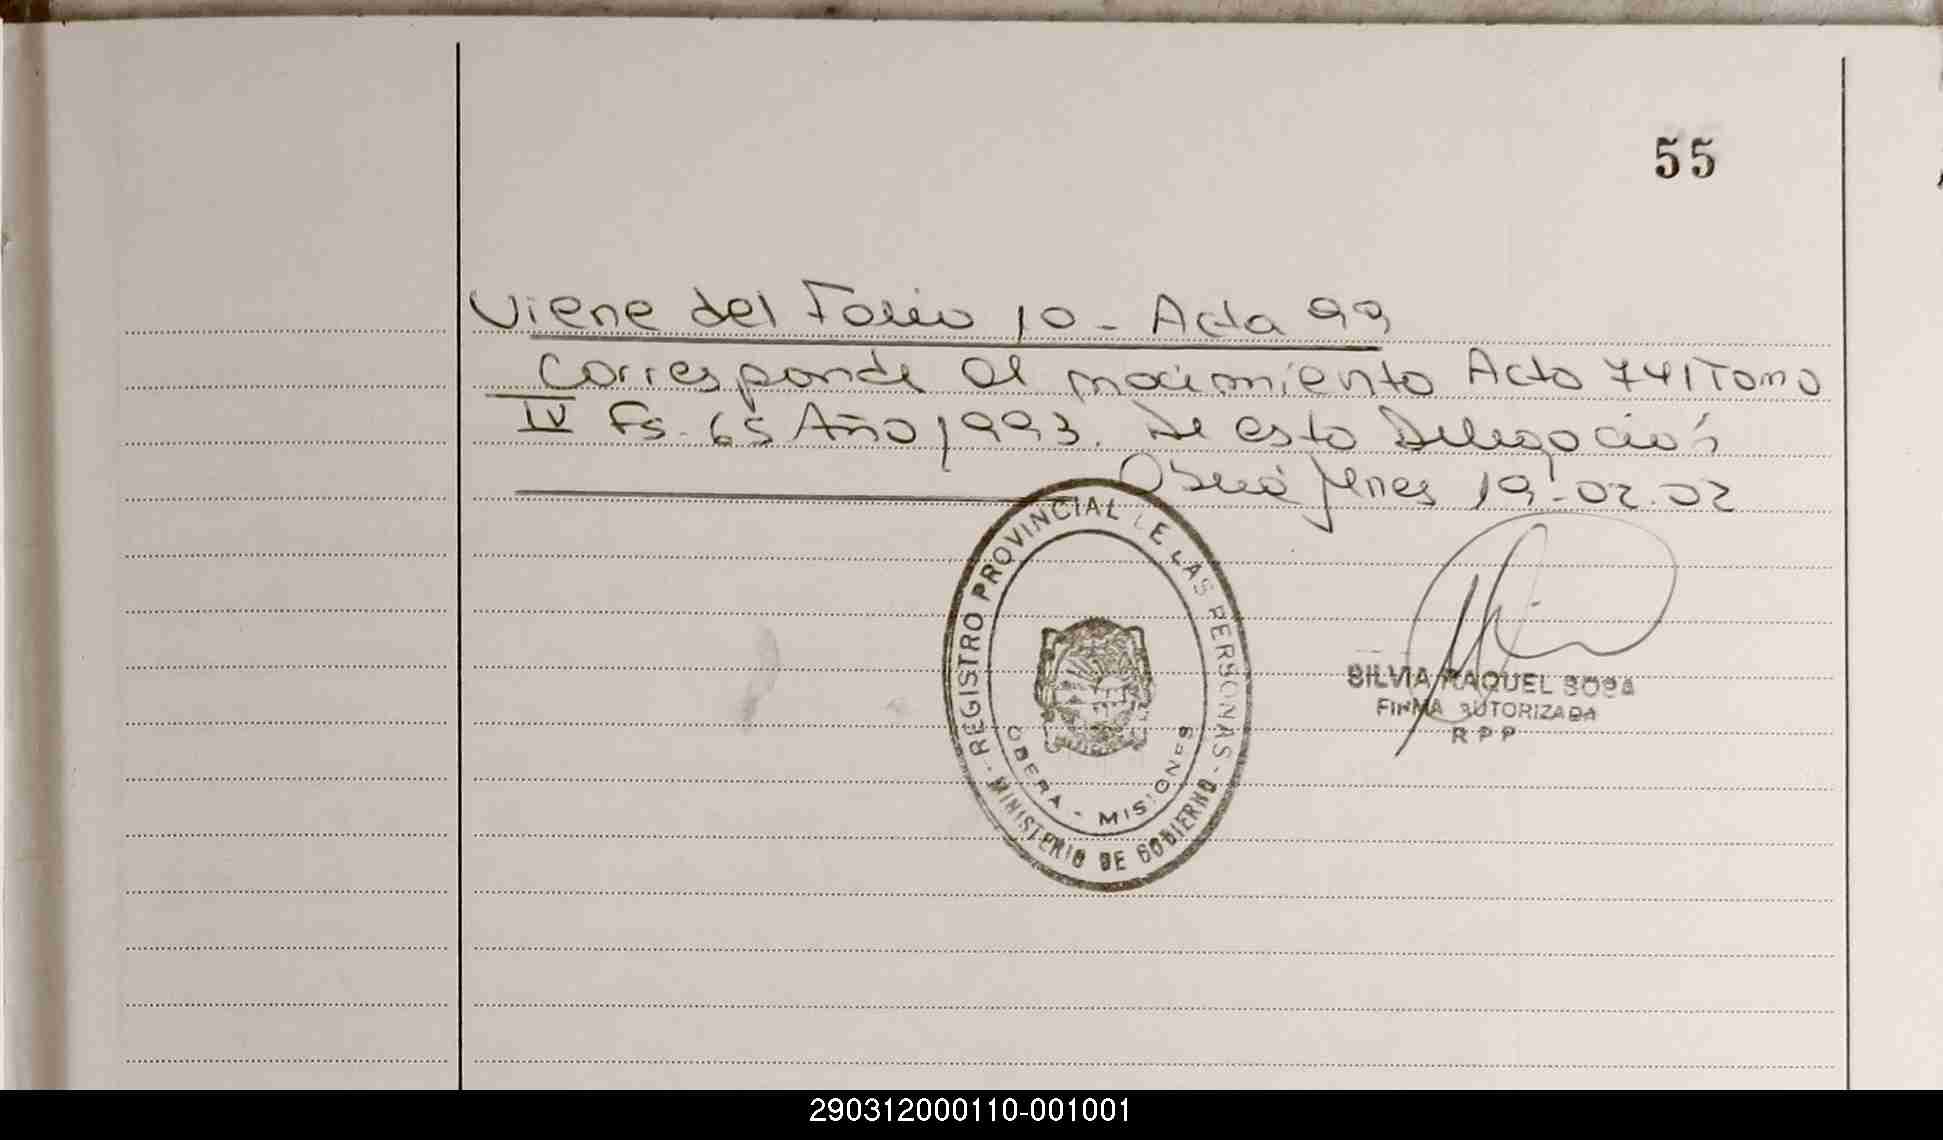 55
Viene del Folio 10 - Acta 99
Corresponde al nacimiento Acta 741 Tomo
IV Fs. 65 Año 1993. De esta Delegación
Oberá Mnes 19-02-02
REGISTRO PROVINCIAL DE LAS PERSONAS
OBERA - MISIONES
MINISTERIO DE GOBIERNO
SILVIA RAQUEL SOSA
FIRMA AUTORIZADA
R P P
290312000110-001001